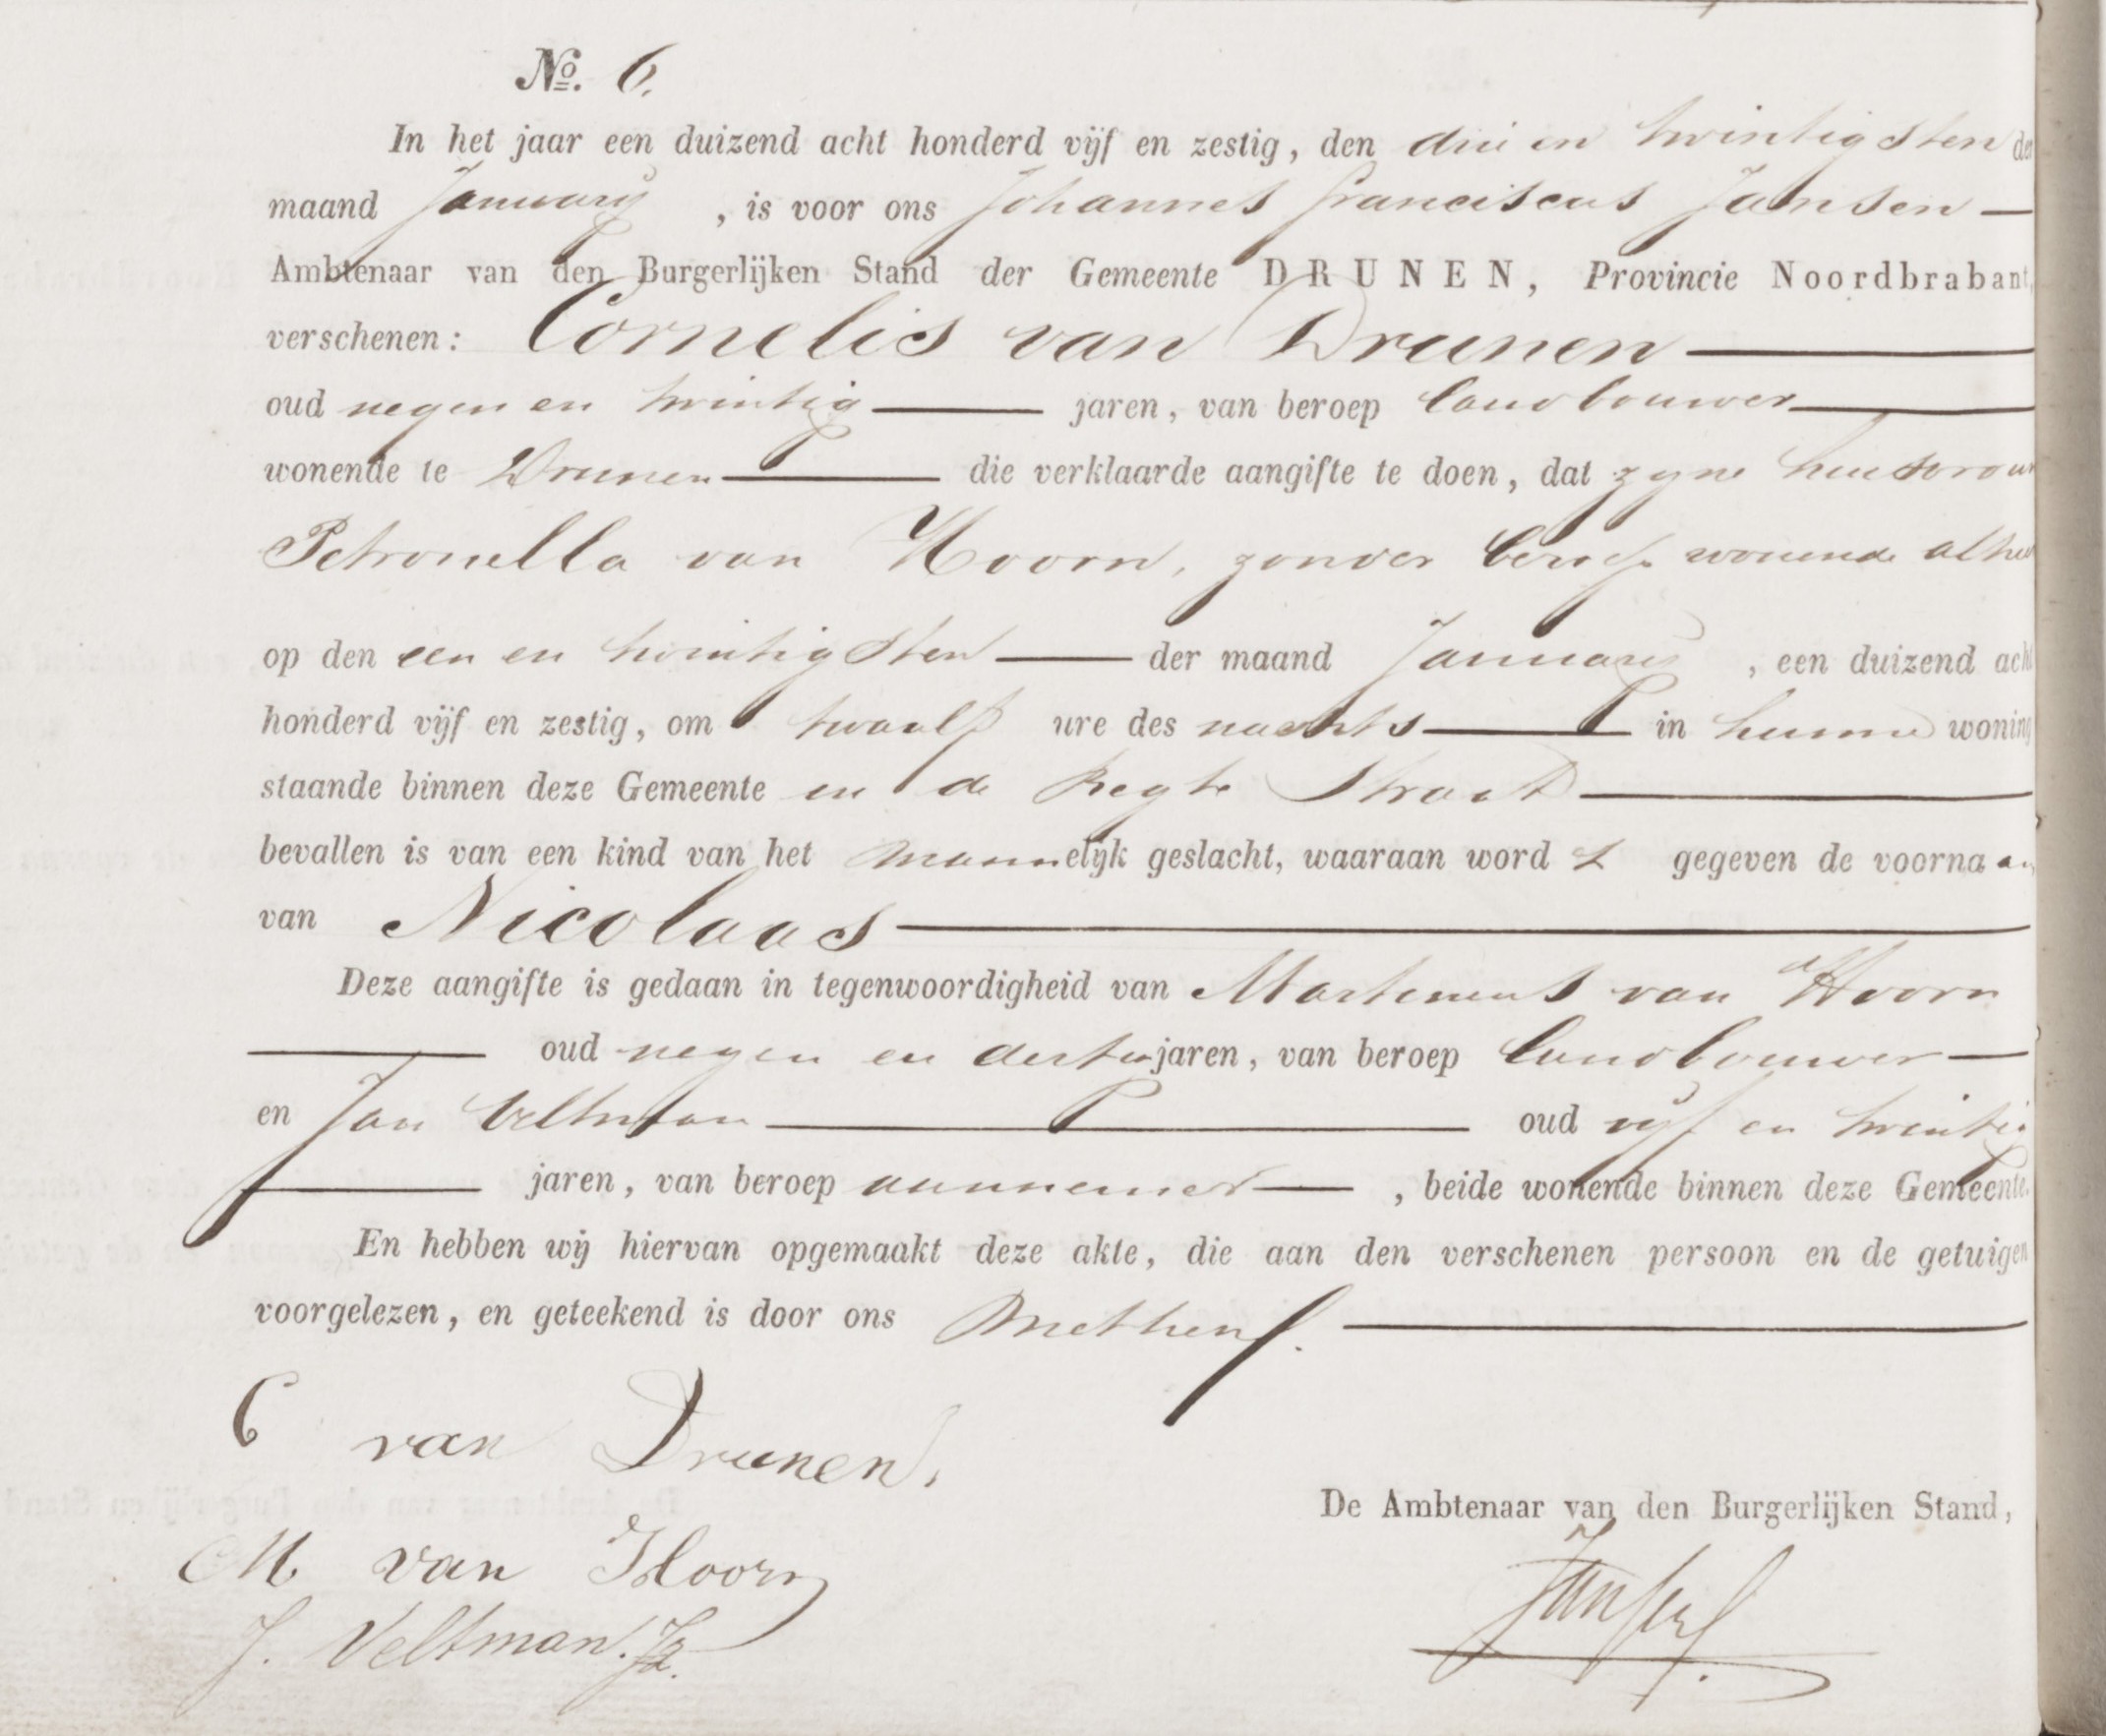 No. 6.
In het jaar een duizend acht honderd vijf en zestig, den drie en twintigsten der
maand January, is voor ons Johannes Franciscus Jansen
Ambtenaar van den Burgerlijken Stand der Gemeente DRUNEN, Provincie Noordbrabant,
verschenen: Cornelis van Drunen
oud negen en twintig jaren, van beroep landbouwer
wonende te Drunen die verklaarde aangifte te doen, dat zyne huisvrouw
Petronella van Hoorn, zonder beroep wonende alhier
op den een en twintigsten der maand January, een duizend acht
honderd vijf en zestig, om twaalf ure des nachts in hunne woning
staande binnen deze Gemeente in de Regte Straat
bevallen is van een kind van het mannelijk geslacht, waaraan word t gegeven de voornaam
van Nicolaas
Deze aangifte is gedaan in tegenwoordigheid van Martinus van Hoorn
oud negen en dertig jaren, van beroep landbouwer
en Jan Veltman oud vijf en twintig
jaren, van beroep aannemer, beide wonende binnen deze Gemeente.
En hebben wij hiervan opgemaakt deze akte, die aan den verschenen persoon en de getuigen
voorgelezen, en geteekend is door ons met hen
C van Drunen.
De Ambtenaar van den Burgerlijken Stand,
M van Hoorn
Jansen
J. Veltman. Jz.